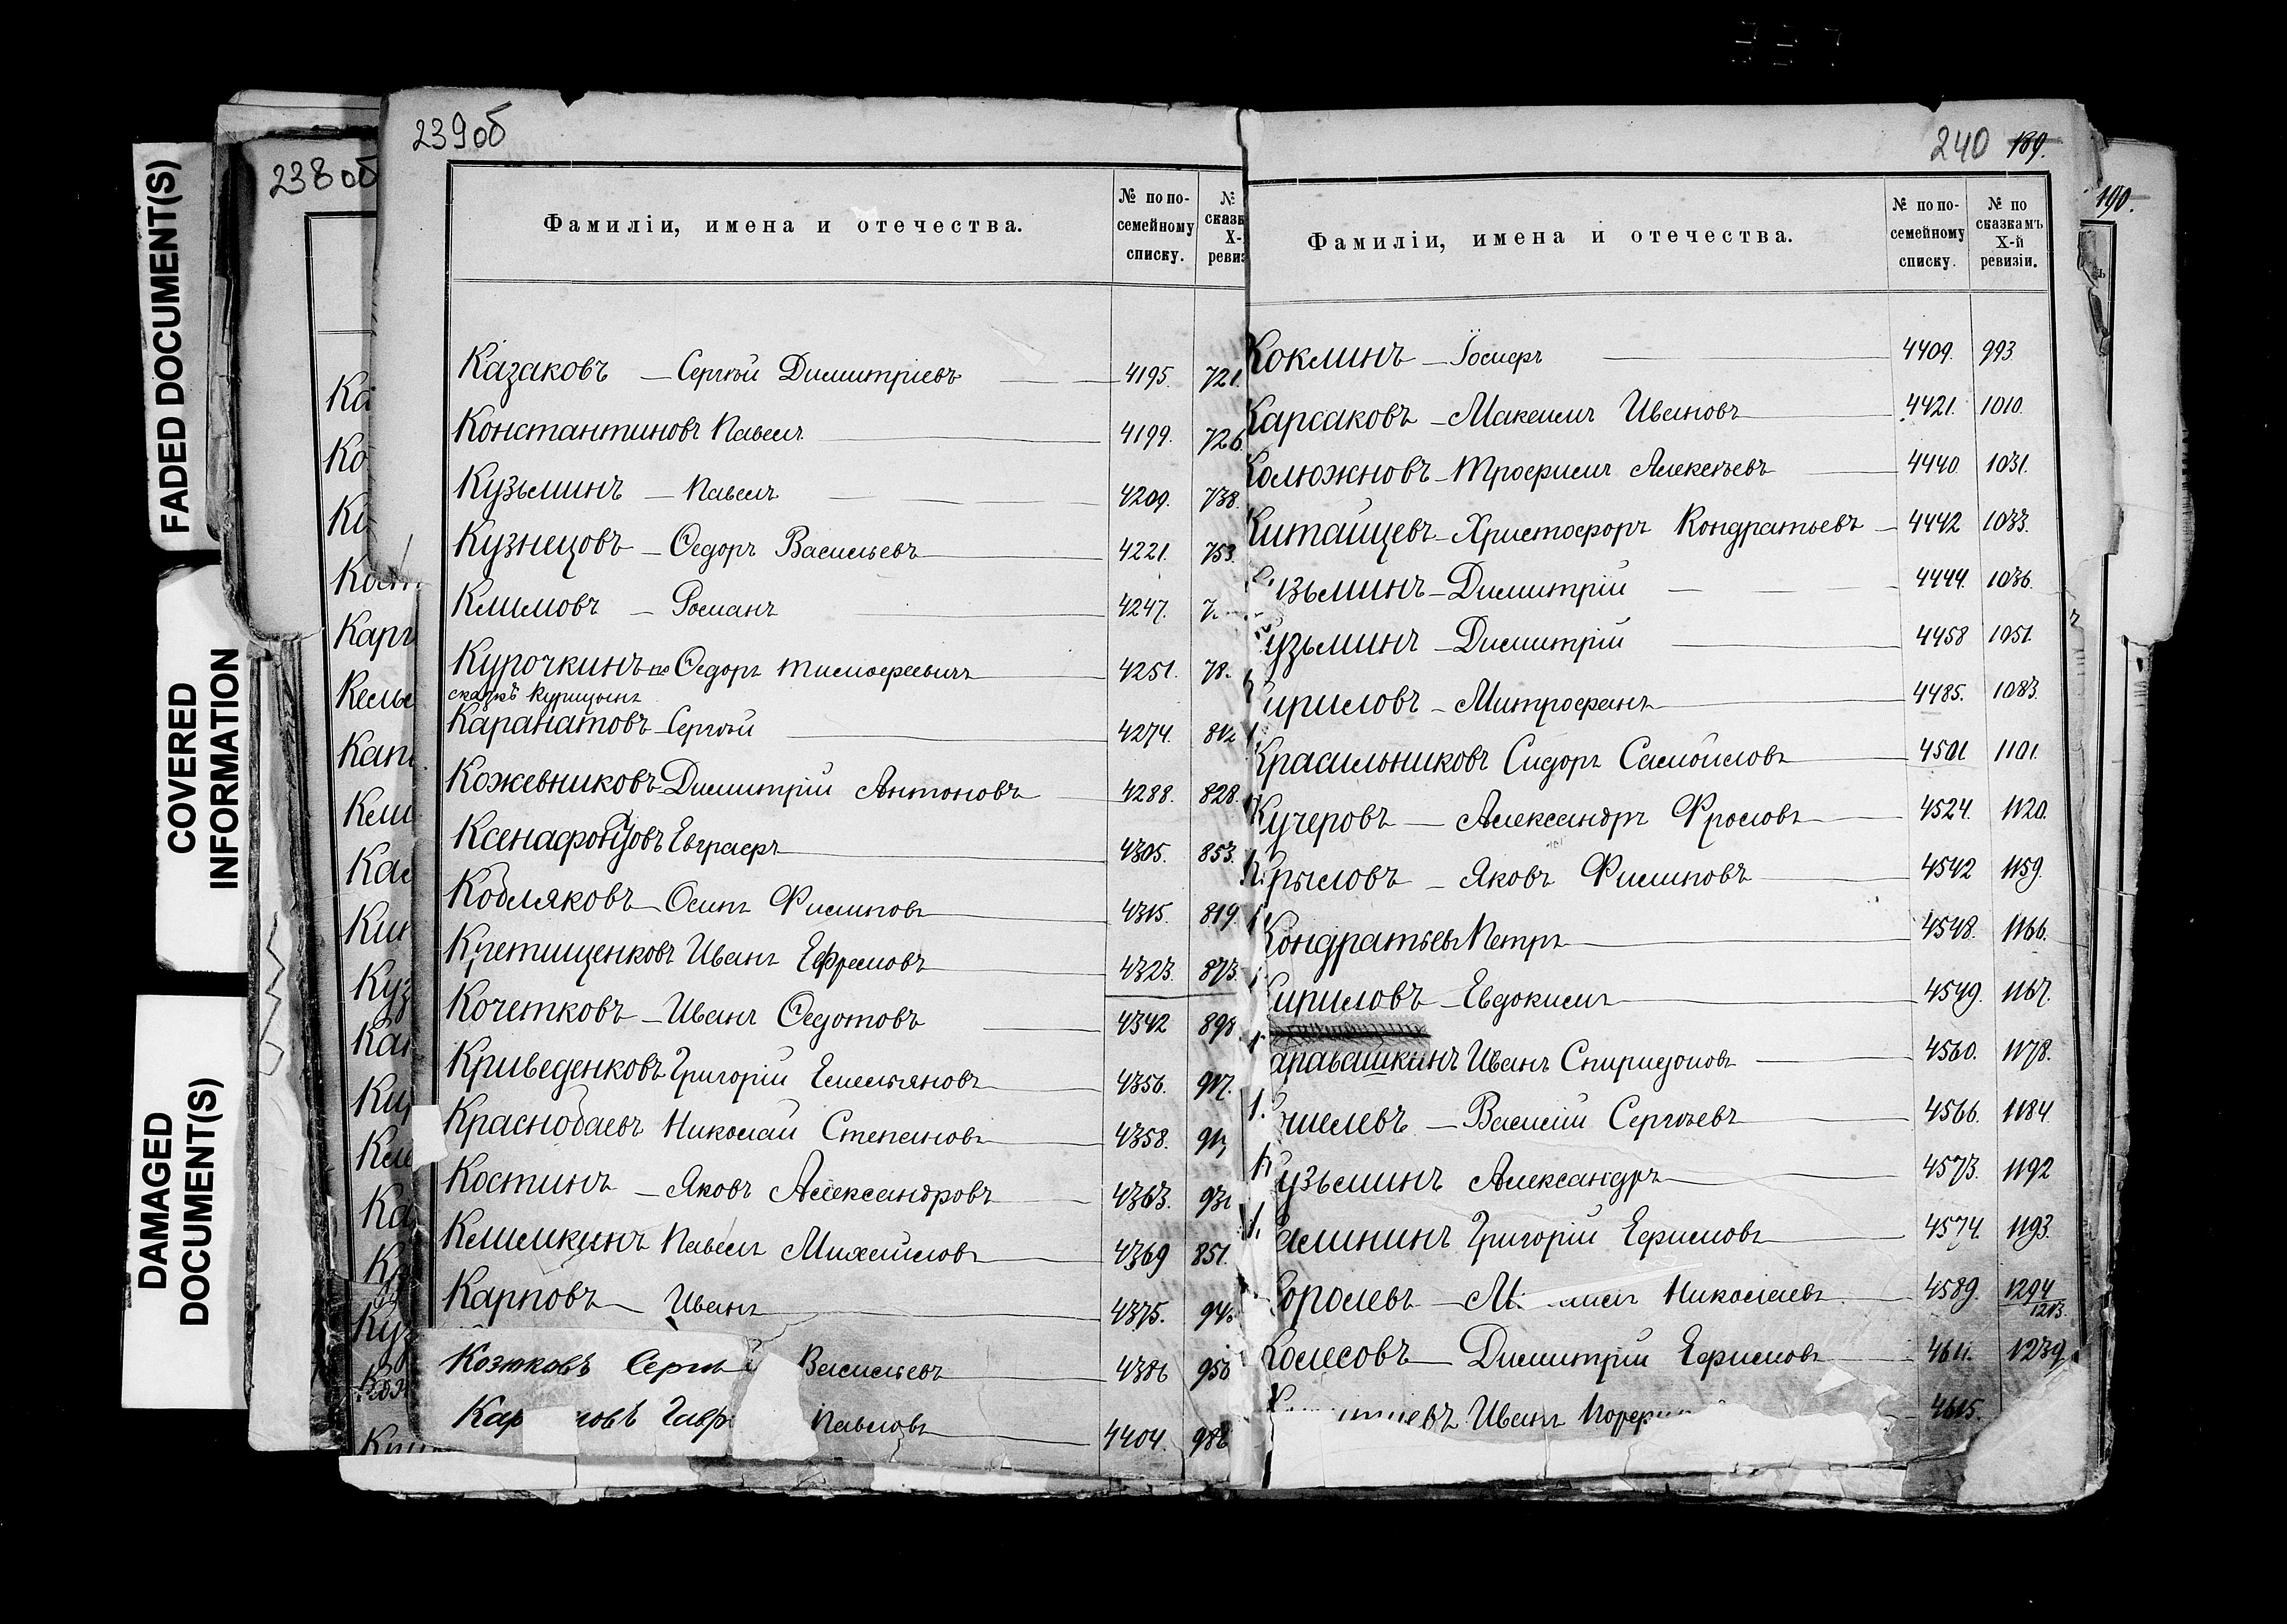 FADED DOCUMENT(S)
COVERED
INFORMATION
DAMAGED
DOCUMENT(S)
238об
239об
Фамиліи, имена и отечества.
№ по по-
семейному
списку.
№
сказк
Х-
ревиз
Казаковъ — Сергѣй Димитріевъ 4195. 721.
Константиновъ Павелъ 4199. 726
Кузьминъ — Павелъ 4209. 738.
Кузнецовъ — Ѳедоръ Васильевъ 4221. 753.
Климовъ — Романъ 4247.
Курочкинъ по Ѳедоръ Тимофеевичъ 4251. 78
сказкѣ Курицынъ
Каранатовъ — Сергѣй 4274. 812
Кожевниковъ — Димитрій Антоновъ 4288. 828.
Ксенафонтовъ Евграфъ 4305. 853.
Кобляковъ — Осипъ Филиповъ 4315. 819.
Иванъ Ефремовъ 4323. 873.
Кочетковъ — Иванъ Ѳедотовъ 4342 898
Криведенковъ Григорій Емельяновъ 4356. 917.
Краснобаевъ Николай Степановъ 4358. 91
Костинъ — Яковъ Александровъ 4363. 93
Климкинъ Павелъ Михайловъ 4369 851.
Карповъ — Иванъ 4375. 94
Козюковъ Серг й Васильевъ 4386 956
Кар новъ Гавр Павловъ 4404. 986
240 189.
Фамиліи, имена и отечества.
№ по по-
семейному
списку.
№ по
сказкамъ
Х-й
ревизіи.
Коклинъ — Іосифъ 4409. 993
Карсаковъ — Максимъ Ивановъ 4421. 1010.
Колюжновъ — Трофимъ Алексѣевъ 4440. 1031.
Китайцевъ — Христофоръ Кондратьевъ — 4442 1033.
узьминъ — Димитрій 4444. 1036.
узьминъ — Димитрій 4458 1051.
ириловъ — Митрофанъ 4485. 1083.
Красильниковъ Сидоръ Самойловъ 4501 1101.
Кучеровъ — Александръ Фроловъ 4524. 1120.
Крыловъ — Яковъ Филиповъ 4542 1159.
Кондратьевъ Петръ 4548. 1166.
ириловъ — Евдокимъ 4549. 1167.
аравашкинъ Иванъ Спиридоновъ 4560. 1178.
шелевъ — Василій Сергѣевъ 4566. 1184
узьминъ Александръ 4573. 1192
алининъ Григорій Ефимовъ 4574. 1193.
оролевъ — Николаевъ 4589. 1294
1213.
Колесовъ — Димитрій Ефимовъ 4611. 1239
Иванъ 4615.
190.